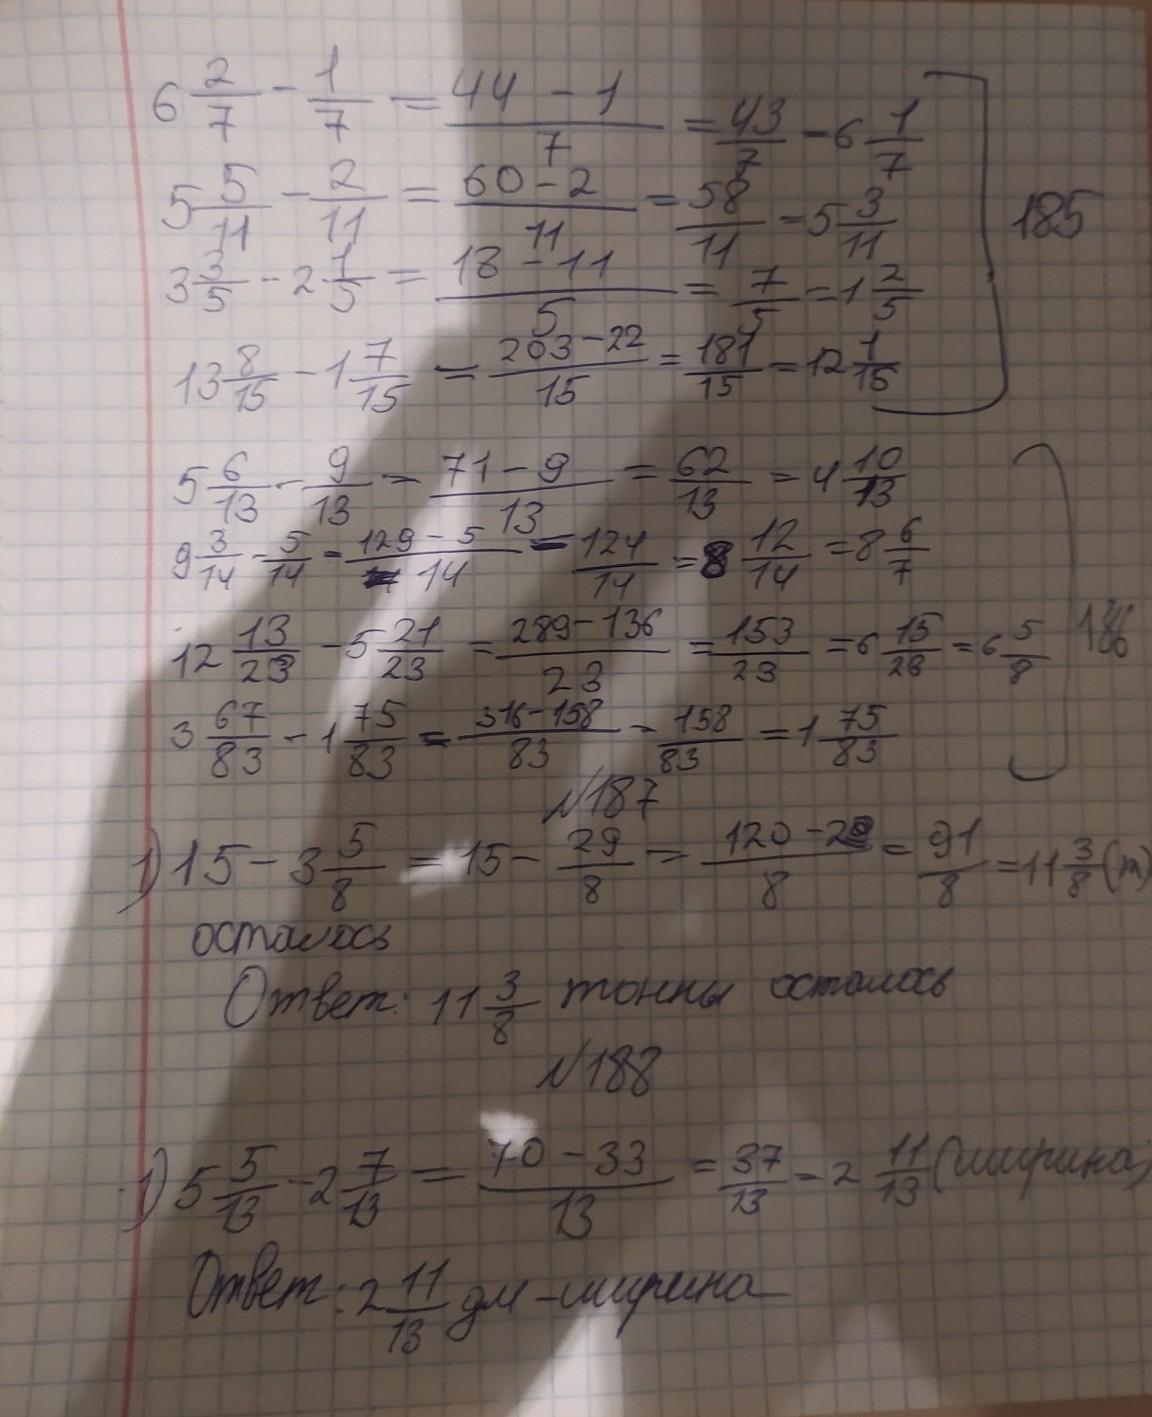 6 2/7 - 1/7 = (44 - 1)/7 = 43/7 = 6 1/7
5 5/11 - 2/11 = (60 - 2)/11 = 58/11 = 5 3/11
3 3/5 - 2 1/5 = (18 - 11)/5 = 7/5 = 1 2/5
13 8/15 - 1 7/15 = (203 - 22)/15 = 181/15 = 12 1/15
185
5 6/13 - 9/13 = (71 - 9)/13 = 62/13 = 4 10/13
9 3/14 - 5/14 = (129 - 5)/14 = 124/14 = 8 12/14 = 8 6/7
12 13/23 - 5 21/23 = (289 - 136)/23 = 153/23 = 6 15/23 = 6 5/8
3 67/83 - 1 75/83 = (316 - 158)/83 = 158/83 = 1 75/83
186
№187
1) 15 - 3 5/8 = 15 - 29/8 = (120 - 29)/8 = 91/8 = 11 3/8 (т)
осталось
Ответ: 11 3/8 тонны осталось
№188
1) 5 5/13 - 2 7/13 = (70 - 33)/13 = 37/13 = 2 11/13 (ширина)
Ответ: 2 11/13 дм - ширина